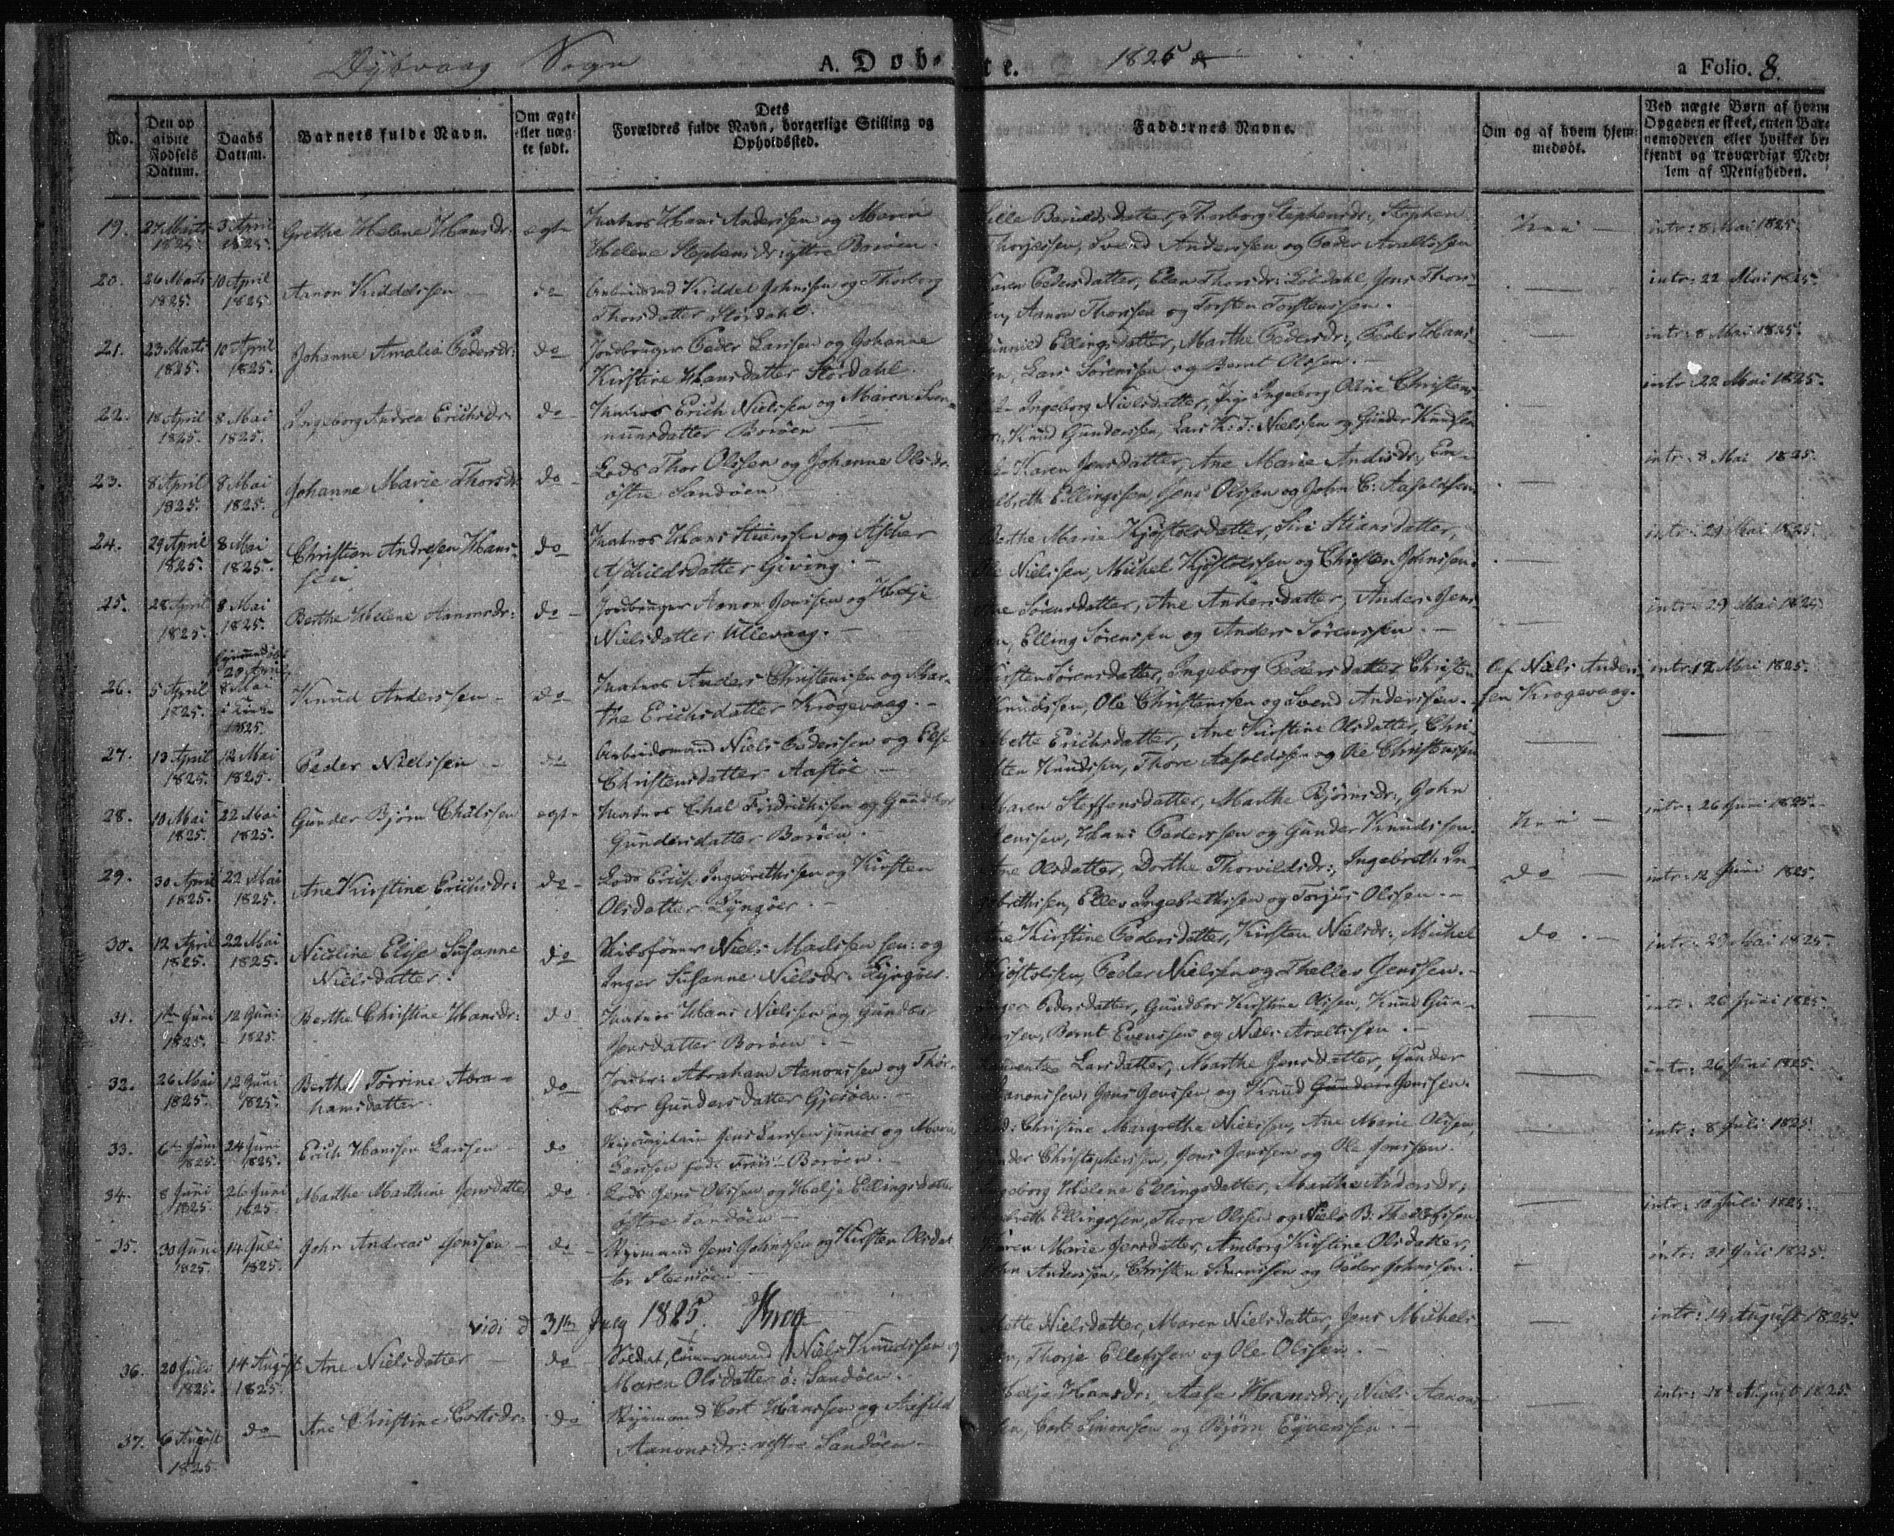 Dybvaag Sogn A. Døbte. 1825 a Folio. 8.
No.
Den opgivne Fødsels Datum.
Daabs Datum.
Barnets fulde Navn.
Om ægte eller uægte født.
Dets Forældres fulde Navn, borgerlige Stilling og Opholdssted.
Faddernes Navne.
Om og af hvem hjemmedøbt.
Ved uægte Børn af hvem Opgaven er skeet, enten Barnemoderen eller hvilket bekjendt og troværdigt Medlem af Menigheden.
19. 27 Marts 1825. 3 April 1825. Grethe Helene Hansdr: egte Matros Hans Anderssen og Maren Helene Stephensdr: yttre Borøen.
Thorborg Stephensdr:, Stephen Thorjessen, Svend Anderssen og Peder
intr: 8 Mai 1825.
20. 26 Marts 1825. 10 April 1825. Aanon Kiddelssen do Arbeidsmd Kiddel Johnssen og Thorborg Thorsdatter Størdahl.
Karen Pedersdatter, Thorsdr:, Jens Thorssen, Aanon Thorssen og Torsten Torstenssen.
intr: 22 Mai 1825.
21. 23 Marts 1825. 10 April 1825. Johanne Amalia Pedersdr: do Jordbruger Peder Larssen og Johanne Kirstine Hansdatter Størdahl.
Gunnild Ellingsdatter, Marthe Pedersdr:, Peder Hanssen, Lars Sørenssen og Bernt Olssen.
intr: 8 Mai 1825.
22. 18 April 1825. 8 Mai 1825. Ingeborg Andrea Erichsdr: do Matros Erich Nielssen og Maren datter Borøen
Ingeborg Nielsdatter, Pige Ingeborg Knud Gunderssen, Lars Nielssen og Gunder Knudssen
intr: 22 Mai 1825.
23. 8 April 1825. 8 Mai 1825. Johanne Marie Thorsdr do Lods Thor Olssen og Johanne Olsdr: østre Sandøen
Karen Jensdatter, Ane Marie Andrsdr:, Engelbreth Ellingssen, Jens Olssen og John C. Aasoldssen
intr: 8 Mai 1825.
24. 29 April 1825. 8 Mai 1825. Christian Andresen Hanssen do Matros Hans Stianssen og Asther Aschildsdatter Giving.
Berthe Maria Kjøstolsdatter, Siri Stiansdatter, Ole Nielssen, Michel Kjøstolssen og Christen Johnssen.
intr: 29 Mai 1825.
25. 28 April 1825. 8 Mai 1825. Berthe Helene Aanonsdr: do Jordbruger Aanon Jenssen og Helje Nielsdatter Ullevaag.
Sørensdatter, Ane Andersdatter, Anders Jenssen, Elling Sørenssen og Anders Sørenssen.
intr: 29 Mai 1825
26. 5 April 1825. 29 April 8 Mai i Kirken 1825. Knud Anderssen do Matros Anders Christenssen og Marthe Erichsdatter Krogevaag.
Kirsten Sørensdatter, Ingeborg Pedersdatter, Christen Knudssen, Ole Christenssen og Svend Anderssen.
Af Niels Anderssen Krogevaag.
intr: 12 Mai 1825.
27. 13 April 1825. 12 Mai 1825. Peder Nielssen do Arbeidsmand Niels Pederssen og Else Christensdatter Aastøe
Mette Erichsdatter, Ane Kirstine Olsdatter, Christen Knudssen, Thore Aasoldssen og Ole Christenssen
28. 10 Mai 1825. 22 Mai 1825. Gunder Bjørn Chalssen egte Matros Chal Fredrichssen og Gundbor Gundersdatter Borøen.
Maren Steffensdatter, Marthe Bjørnsdr:, John Jenssen, Hans Pederssen og Gunder Knudssen.
intr: 26 Juni 1825.
29. 30 April 1825. 22 Mai 1825. Ane Kirstine Erichsdr: do Lods Erich Ingebrethssen og Kirsten Olsdatter Lyngøer.
Ane Olsdatter, Dorthe Thorvildsdr:, Ingebreth Ingebrethssen, Ellev Ingebrethssen og Torjus Olssen.
do
intr: 12 Juni 1825.
30. 12 April 1825. 22 Mai 1825. Nicoline Elise Susanne Nielsdatter. do Skibsfører Niels Madssen sen: og Inger Susanne Nielsdr: Lyngøer.
Ane Kirstine Pedersdatter, Kirsten Nielsdr:, Michel Kjøstolssen, Peder Nielssen og Thelles Jenssen.
do.
intr: 29 Mai 1825.
31. 1ste Juni 1825. 12 Juni 1825. Berthe Christine Hansdr: do Matros Hans Nielssen og Gundbor Jensdatter Borøen.
Inger Pedersdatter, Gundbor Kirstine Olssen, Knud Gunderssen, Bernt Evenssen og Niels
intr: 26 Juni 1825.
32. 26 Mai 1825. 12 Juni 1825. Berthe Torrine Abrahamsdatter. do Jordbr: Abraham Aanonssen og Thorbor Gundersdatter Gjesøen.
Laurentze Larsdatter, Marthe Jensdatter, Gunder Aanonssen, Jens Jenssen og Knud Jenssen.
intr: 26 Juni 1825.
33. 6te Juni 1825. 24 Juni 1825. Erich Hanssen Larssen do Skibscapitain Jens Larssen junior og Maren Larssen født Friis Borøen.
Christine Margrethe Nielssen, Ane Marie Olssen, Gunder Christopherssen, Jens Jenssen og Ole Jenssen.
intr: 8 Juli 1825.
34. 8 Juni 1825. 26 Juni 1825. Marthe Marthine Jensdatter do Lods Jens Olssen og Helje Ellingsdatter østre Sandøen
Ingeborg Helene Ellingsdatter, Marthe Andersdr:, Engebreth Ellingssen, Thore Olssen og Niels B. Thellefssen
intr: 10 Juli 1825.
35. 30 Juni 1825. 14 Juli 1825. John Andreas Jenssen do Styrmand Jens Johnssen og Kirsten Olsdatter Stensøen
Karen Marie Jensdatter, Amborg Kirstine Olsdatter, John Anderssen, Christen Simonssen og Peder Johnssen.
intr: 31 Juli 1825.
vidi d 31te July 1825. Krog
36. 20 Juli 1825. 14 August 1825. Ane Nielsdatter do Soldat, Niels Knudssen og Maren Olsdatter ø: Sandøen.
Mette Nielsdatter, Maren Nielsdatter, Jens Michelssen, Thorje Ellefssen og Ole Olssen.
intr: 14 August 1825.
37. 6 August 1825. do Ane Christine Cortsdr: do Styrmand Cort Hanssen og Aanonsdr: vestre Sandøen
Helje Hansdr:, Aase Hansdr:, Niels Aanonssen, Cort Simonssen og Bjørn
intr: 28 August 1825.